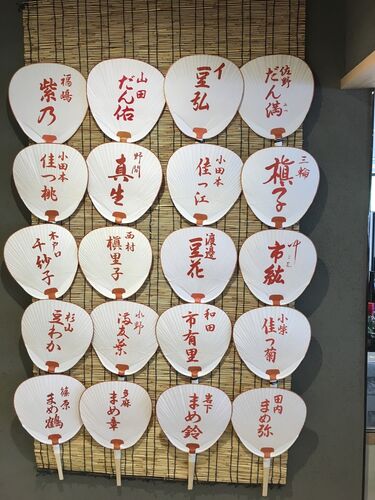 福嶋
紫乃
山田
だん佑
イ
豆弘
佐野
だん満
小田本
佳つ桃
野間
真生
小田本
佳つ江
三輪
槇子
木戸口
千紗子
西村
槇里子
渡邉
豆花
市紘
杉山
豆わか
水野
友葉
和田
市有里
小柴
佳つ菊
篠原
まめ鶴
多麻
まめ幸
岩下
まめ鈴
田内
まめ弥